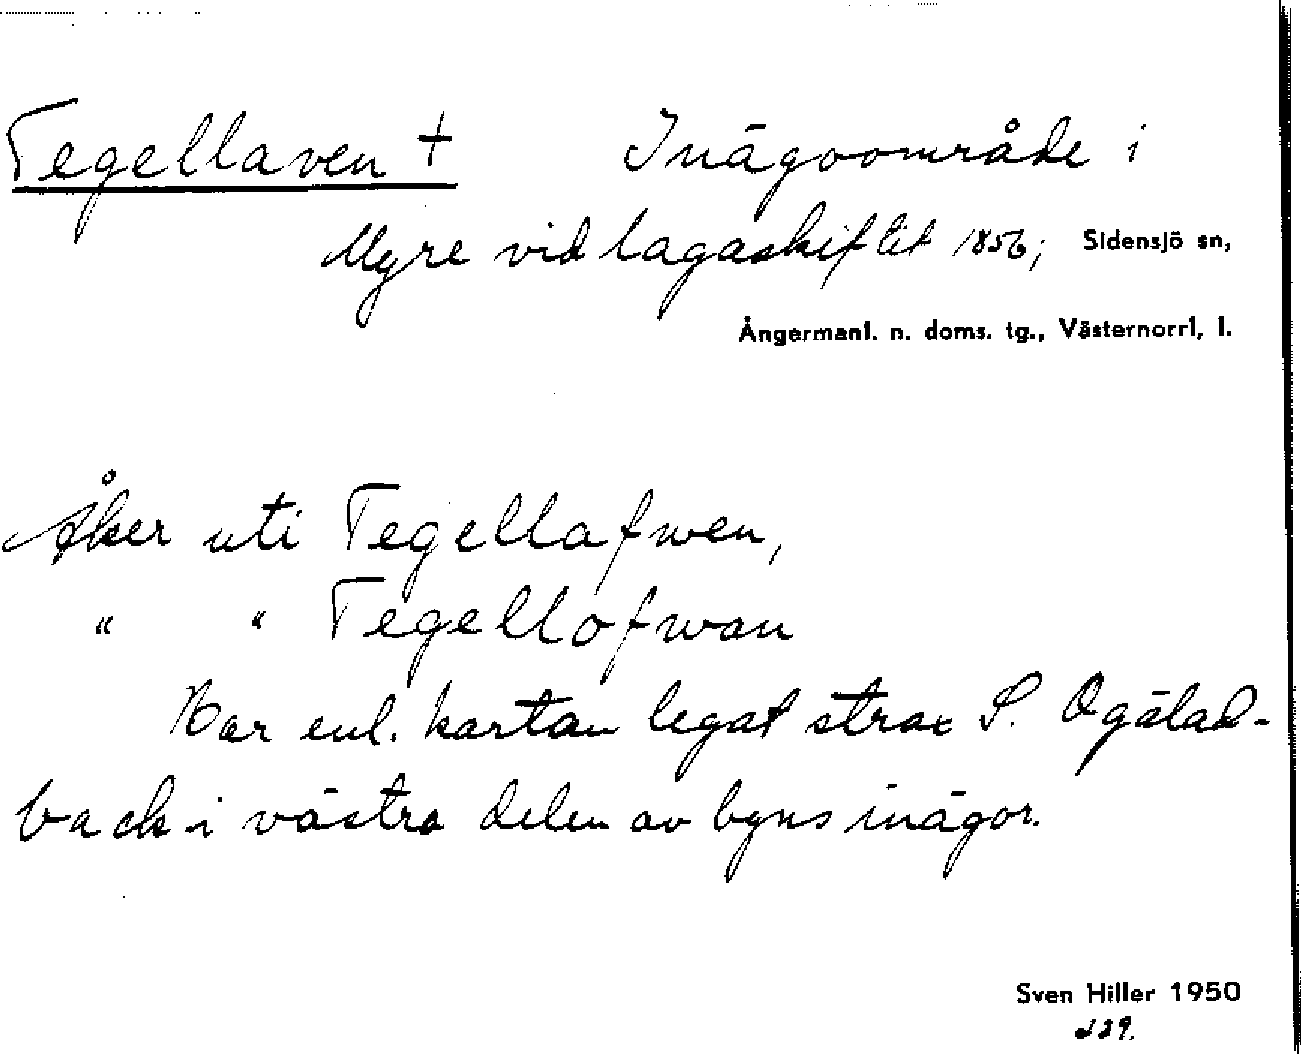 Tegellaven + Inägoområde i
Myre vid lagaskiftet 1856; Sidensjö sn,
Ångermanl. n. doms. tg., Västernorrl, l.
Åker uti Tegellafwen,
" " Tegellofwan
Har enl. kartan legat strax S. Ogälad-
back i västra delen av byns inägor.
Sven Hiller 1950